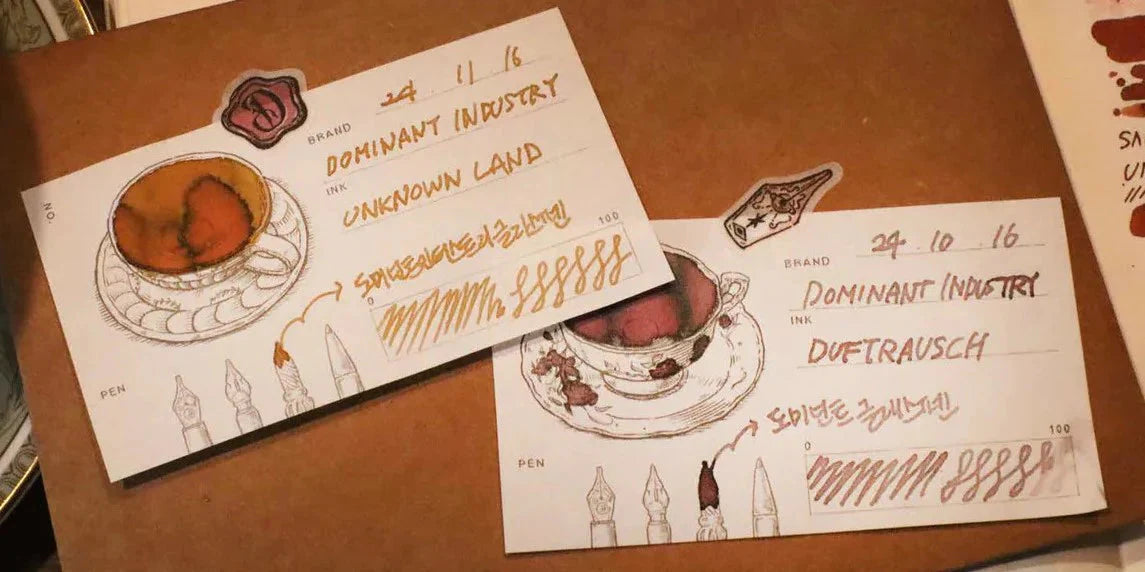 NO.
24 . 11 . 16
BRAND
DOMINANT INDUSTRY
INK
UNKNOWN LAND
도미넌트인더스트리 글라스펜
0
100
PEN
24 . 10 . 16
BRAND
DOMINANT INDUSTRY
INK
DUFTRAUSCH
도미넌트 글래스펜
0
100
PEN